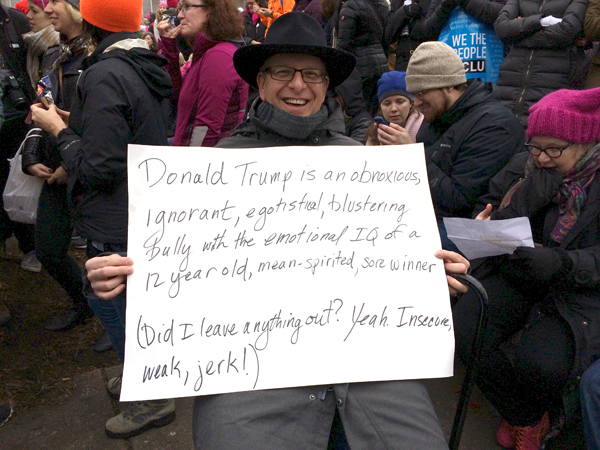 WE THE
PEOPLE
ACLU
Donald Trump is an obnoxious,
ignorant, egotistical, blustering
Bully with the emotional IQ of a
12 year old, mean-spirited, sore winner
(Did I leave anything out? Yeah. Insecure,
weak, jerk!)